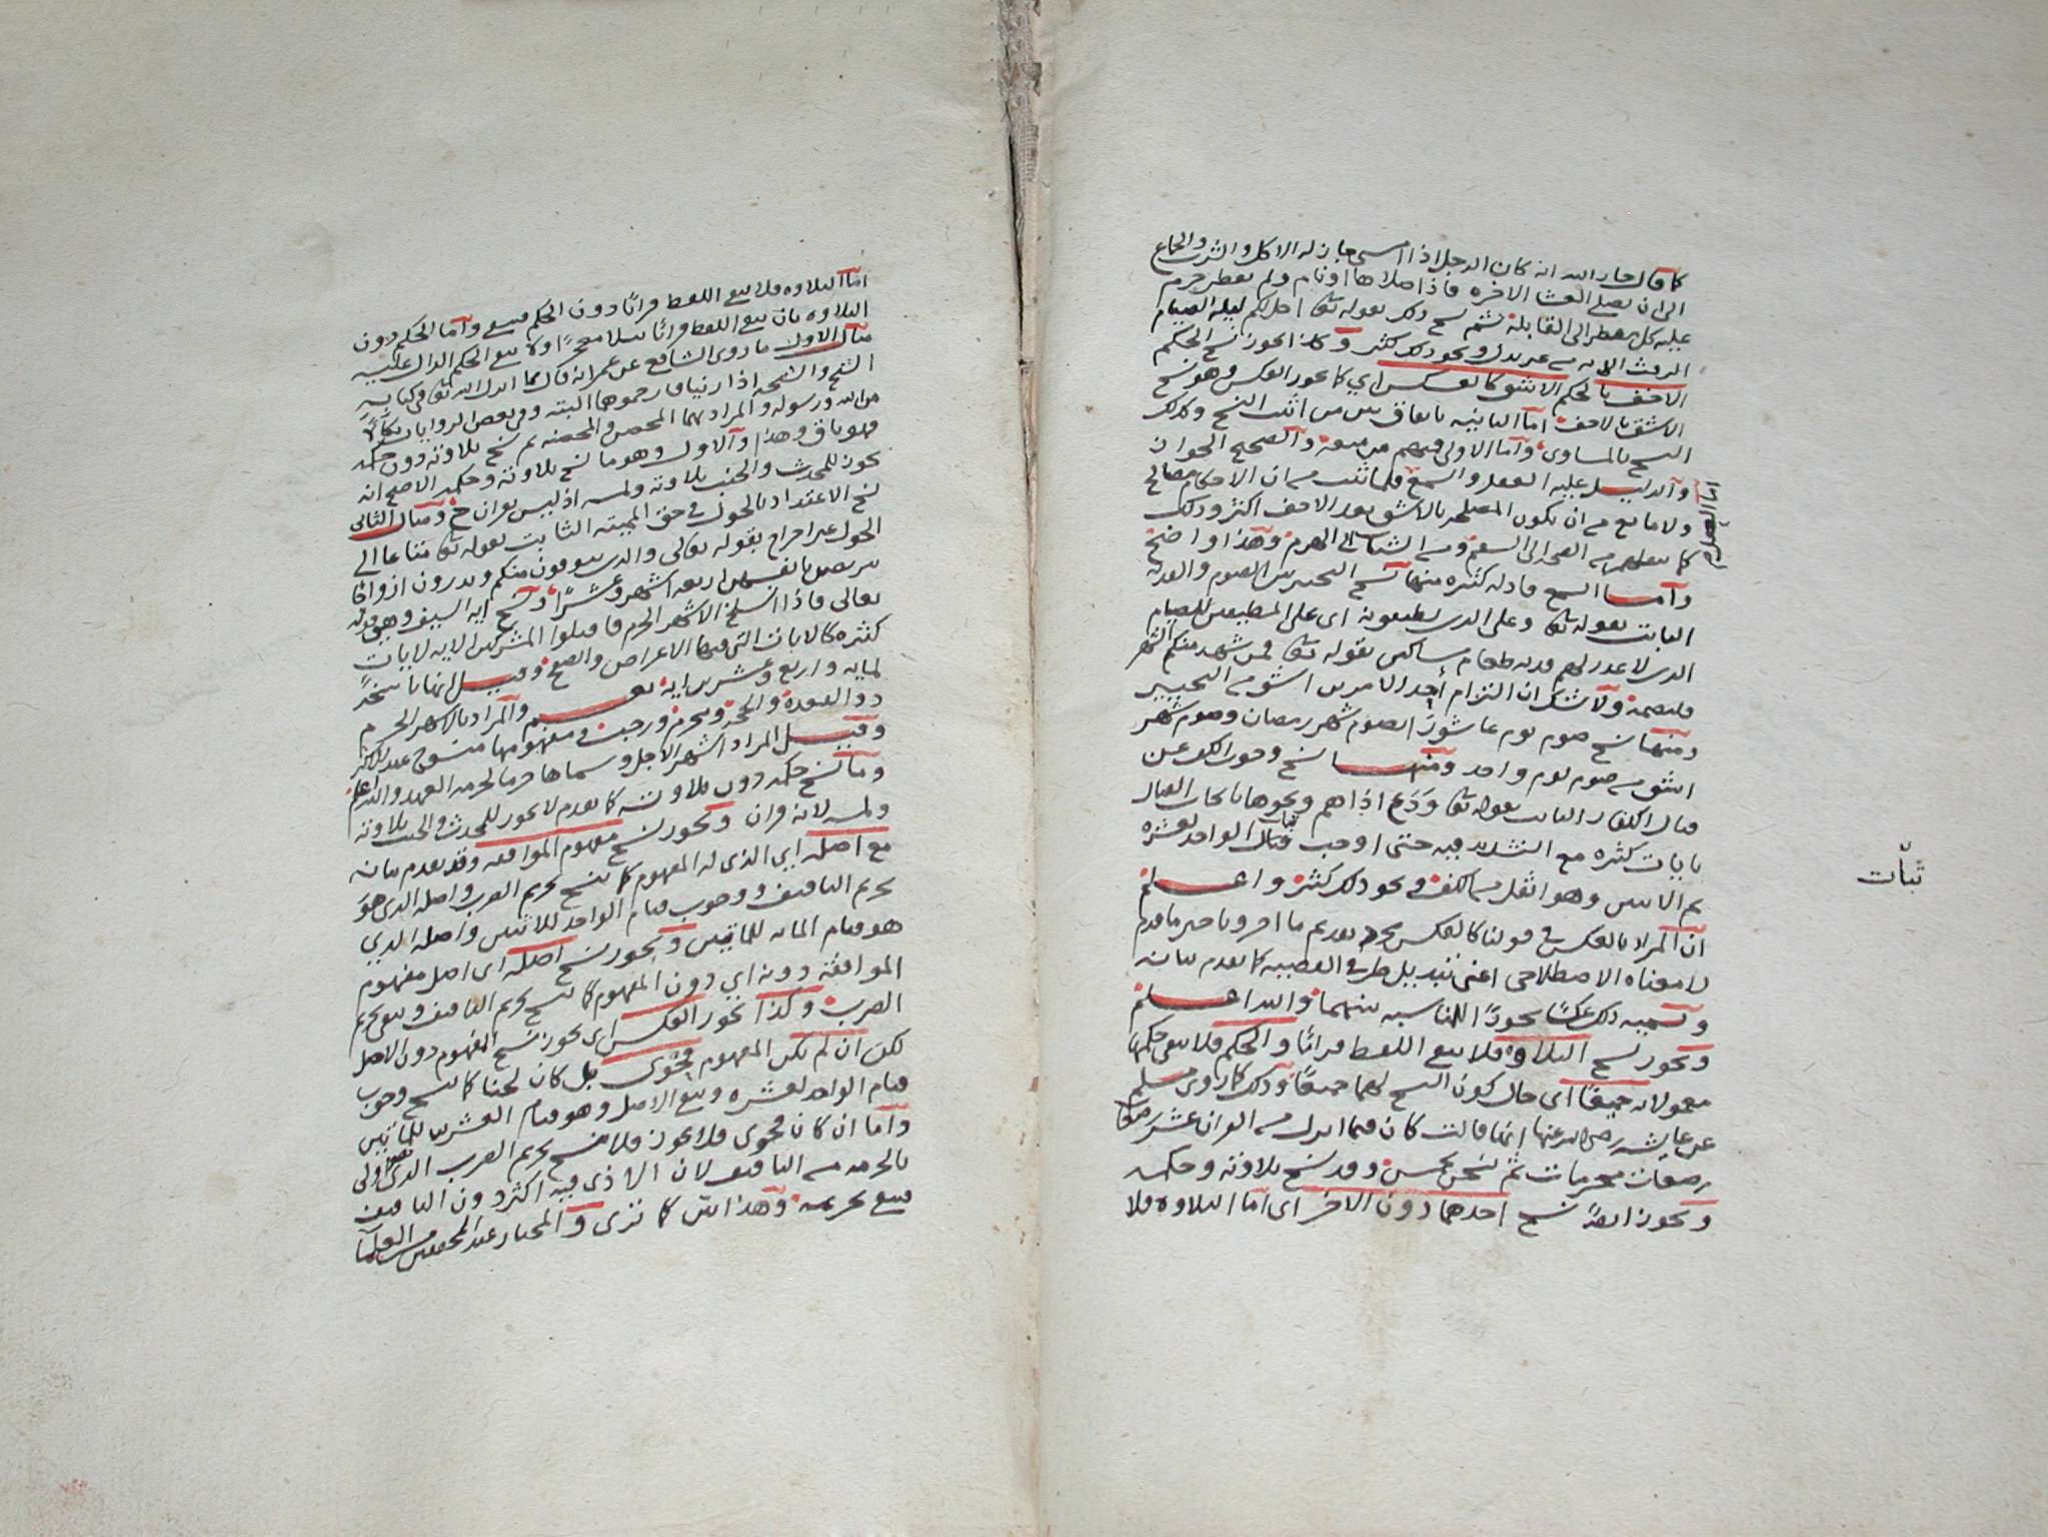 كما قال جار الله انه كان الرجل اذا امسى جاز له الاكل والشرب والجماع
الى ان يصلي العشا الاخره فاذا صلاها او نام ولم يفطر حرم
عليه كل مفطر الى القابلة ثم نسخ ذلك بقوله تعا احل لكم ليلة الصيام
الرفث الايه من غير بدل ونحو ذلك كثير وكذا يجوز نسخ الحكم
الاخف بالحكم الاشق كالعكس اي كما يجوز العكس وهو نسخ
الاشق بالاخف اما الثانيه باتفاق بين من اثبت النسخ وكذلك
النسخ بالمساوي وآما الاولى فمنهم من منعه وآلصحيح الجواز
وآلدليل عليه العقل والسمع فلما ثبت من ان الاحكام مصالح
ولا مانع من ان تكون المصلحه بالاشق بعد الاخف اكثر وذلك
كما ينقلهم من الصحه الى السقم ومن الشباب الى الهرم وهذا واضح
وآما السمع فادله كثيره منها نسخ التخيير بين الصوم والفديه
الثابت بقوله تعا وعلى الذين يطيقونه اى على المطيقين للصيام
الذين لا عذر لهم فديه طعام مساكين بقوله تعا فمن شهد منكم الشهر
فليصمه ولا شك ان التزام أحد الامرين اشق من التخيير
ومنها نسخ صوم يوم عاشورآ بصوم شهر رمضان وصوم شهر
اشق من صوم يوم واحد ومنها نسخ وجوب الكف عن
قتال الكفار الثابت بقوله تعا وَدَع اذاهم ونحوها بايجاب القتال
بايات كثيره مع التشديد فيه حتى اوجب ثبات الواحد لعشره
ثم الاثنين وهو اثقل من الكف ونحو ذلك كثير واعلم
ان المراد بالعكس في قولنا كالعكس مجرد تقديم ما اخر وتاخير ما قدم
لا معناه الاصطلاحي اعني تبديل طرفي القضيه كما تقدم بيانه
وتسميه ذلك عكسًا تجوزًا للمناسبه بينهما والله اعلم
ويجوز نسخ التلاوه فلا يبقى اللفظ قرانًا والحكم فلا يبقى حكمها
معمولا به جميعًا اى حال كون النسخ لهما جميعًا وذلك كما روى مسلم
عن عايشه رضى الله عنها انها قالت كان فيما انزل من القران عشر رضعات
رضعات محرمات ثم نسخن بخمس وقد نسخ تلاوته وحكمه
ويجوز ايضًا نسخ احدهما دون الاخر اى اما التلاوه فلا
ثبات
اما التلاوه فلا يبقى اللفظ قرانًا دون الحكم فيبقى وآما الحكم دون
التلاوه بان يبقى اللفظ قرانًا متلوا معجزًا ولا يبقى الحكم الدال عليه
مثال الاول ما روى الشافعي عن عمر انه قال مما انزل الله تعا في كتابه
الشيخ والشيخه اذا زنيا فارجموهما البته وفي بعض الروايات نكالًا
من الله ورسوله والمراد بهما المحصن والمحصنه ثم نسخ تلاوته دون حكمه
فهو باق وهذا وآلاول وهو ما نسخ تلاوته وحكمه الاصح انه
يجوز للمحدث والجنب تلاوته ولمسه اذ ليس بقران ومثال الثاني
نسخ الاعتداد بالحول في حق المميته الثابت بقوله تعا متاعا الى
الحول غير اخراج بقوله تعالى والذين يتوفون منكم ويذرون ازواجا
يتربصن بانفسهن اربعه اشهر وعشرًا ونسخ ايه السيف وهي قوله
تعالى فاذا انسلخ الاشهر الحرم فاقتلوا المشركين الايه لايات
كثيره كالايات التي فيها الاعراض والصفح وقيل انها ناسخةً
لمايه واربع وعشرين ايه نعم وآلمراد بالاشهر الحرم
ذو القعدة والحجة ومحرم ورجب ومفهومها منسوخ عند الاكثر
وقيل المراد اشهر الاجل وسماها حرما لحرمه العهد والله اعلم
وما نسخ حكمه دون تلاوته كما تقدم لا يجوز للمحدث والجنب تلاوته
ولمسه لانه قران ويجوز نسخ مفهوم الموافقه وقد تقدم بيانه
مع اصله اي الذي له المفهوم كما ينسخ تحريم الضرب واصله الذي هو
تحريم التافيف ووجوب قيام الواحد للاثنين واصله الذي
هو قيام المايه للماتين ويجوز نسخ اصله اى اصل مفهوم
الموافقة دونه اي دون المفهوم كما ينسخ تحريم التافيف ويبقى تحريم
الضرب وكذا يجوز العكس اى يجوز نسخ المفهوم دون الاصل
لكن ان لم يكن المفهوم فحوى بل كان لحنا كما ينسخ وجوب
قيام الواحد لعشره ويبقى الاصل وهو قيام العشرين للماتين
وآما ان كان فحوى فلا يجوز فلا ينسخ تحريم الضرب الذي هو اولى
بالحرمه من التافيف لان الاذى فيه اكثر دون التافيف
فيبقى تحريمه وهذا بيّن كما ترى والمختار عند المحققين من العلما